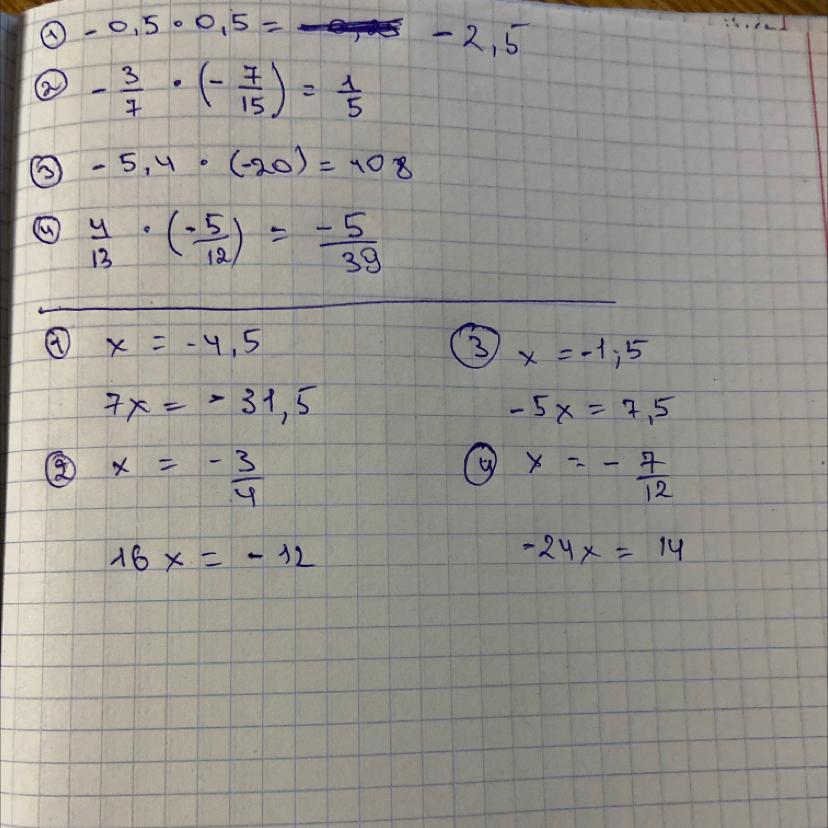 ① - 0,5 • 0,5 = - 2,5
② - 3/7 • (- 7/15) = 1/5
③ - 5,4 • (-20) = 108
④ 4/13 • (-5/12) = -5/39
① x = -4,5
7x = - 31,5
② x = - 3/4
16x = - 12
③ x = -1,5
-5x = 7,5
④ x = - 7/12
-24x = 14